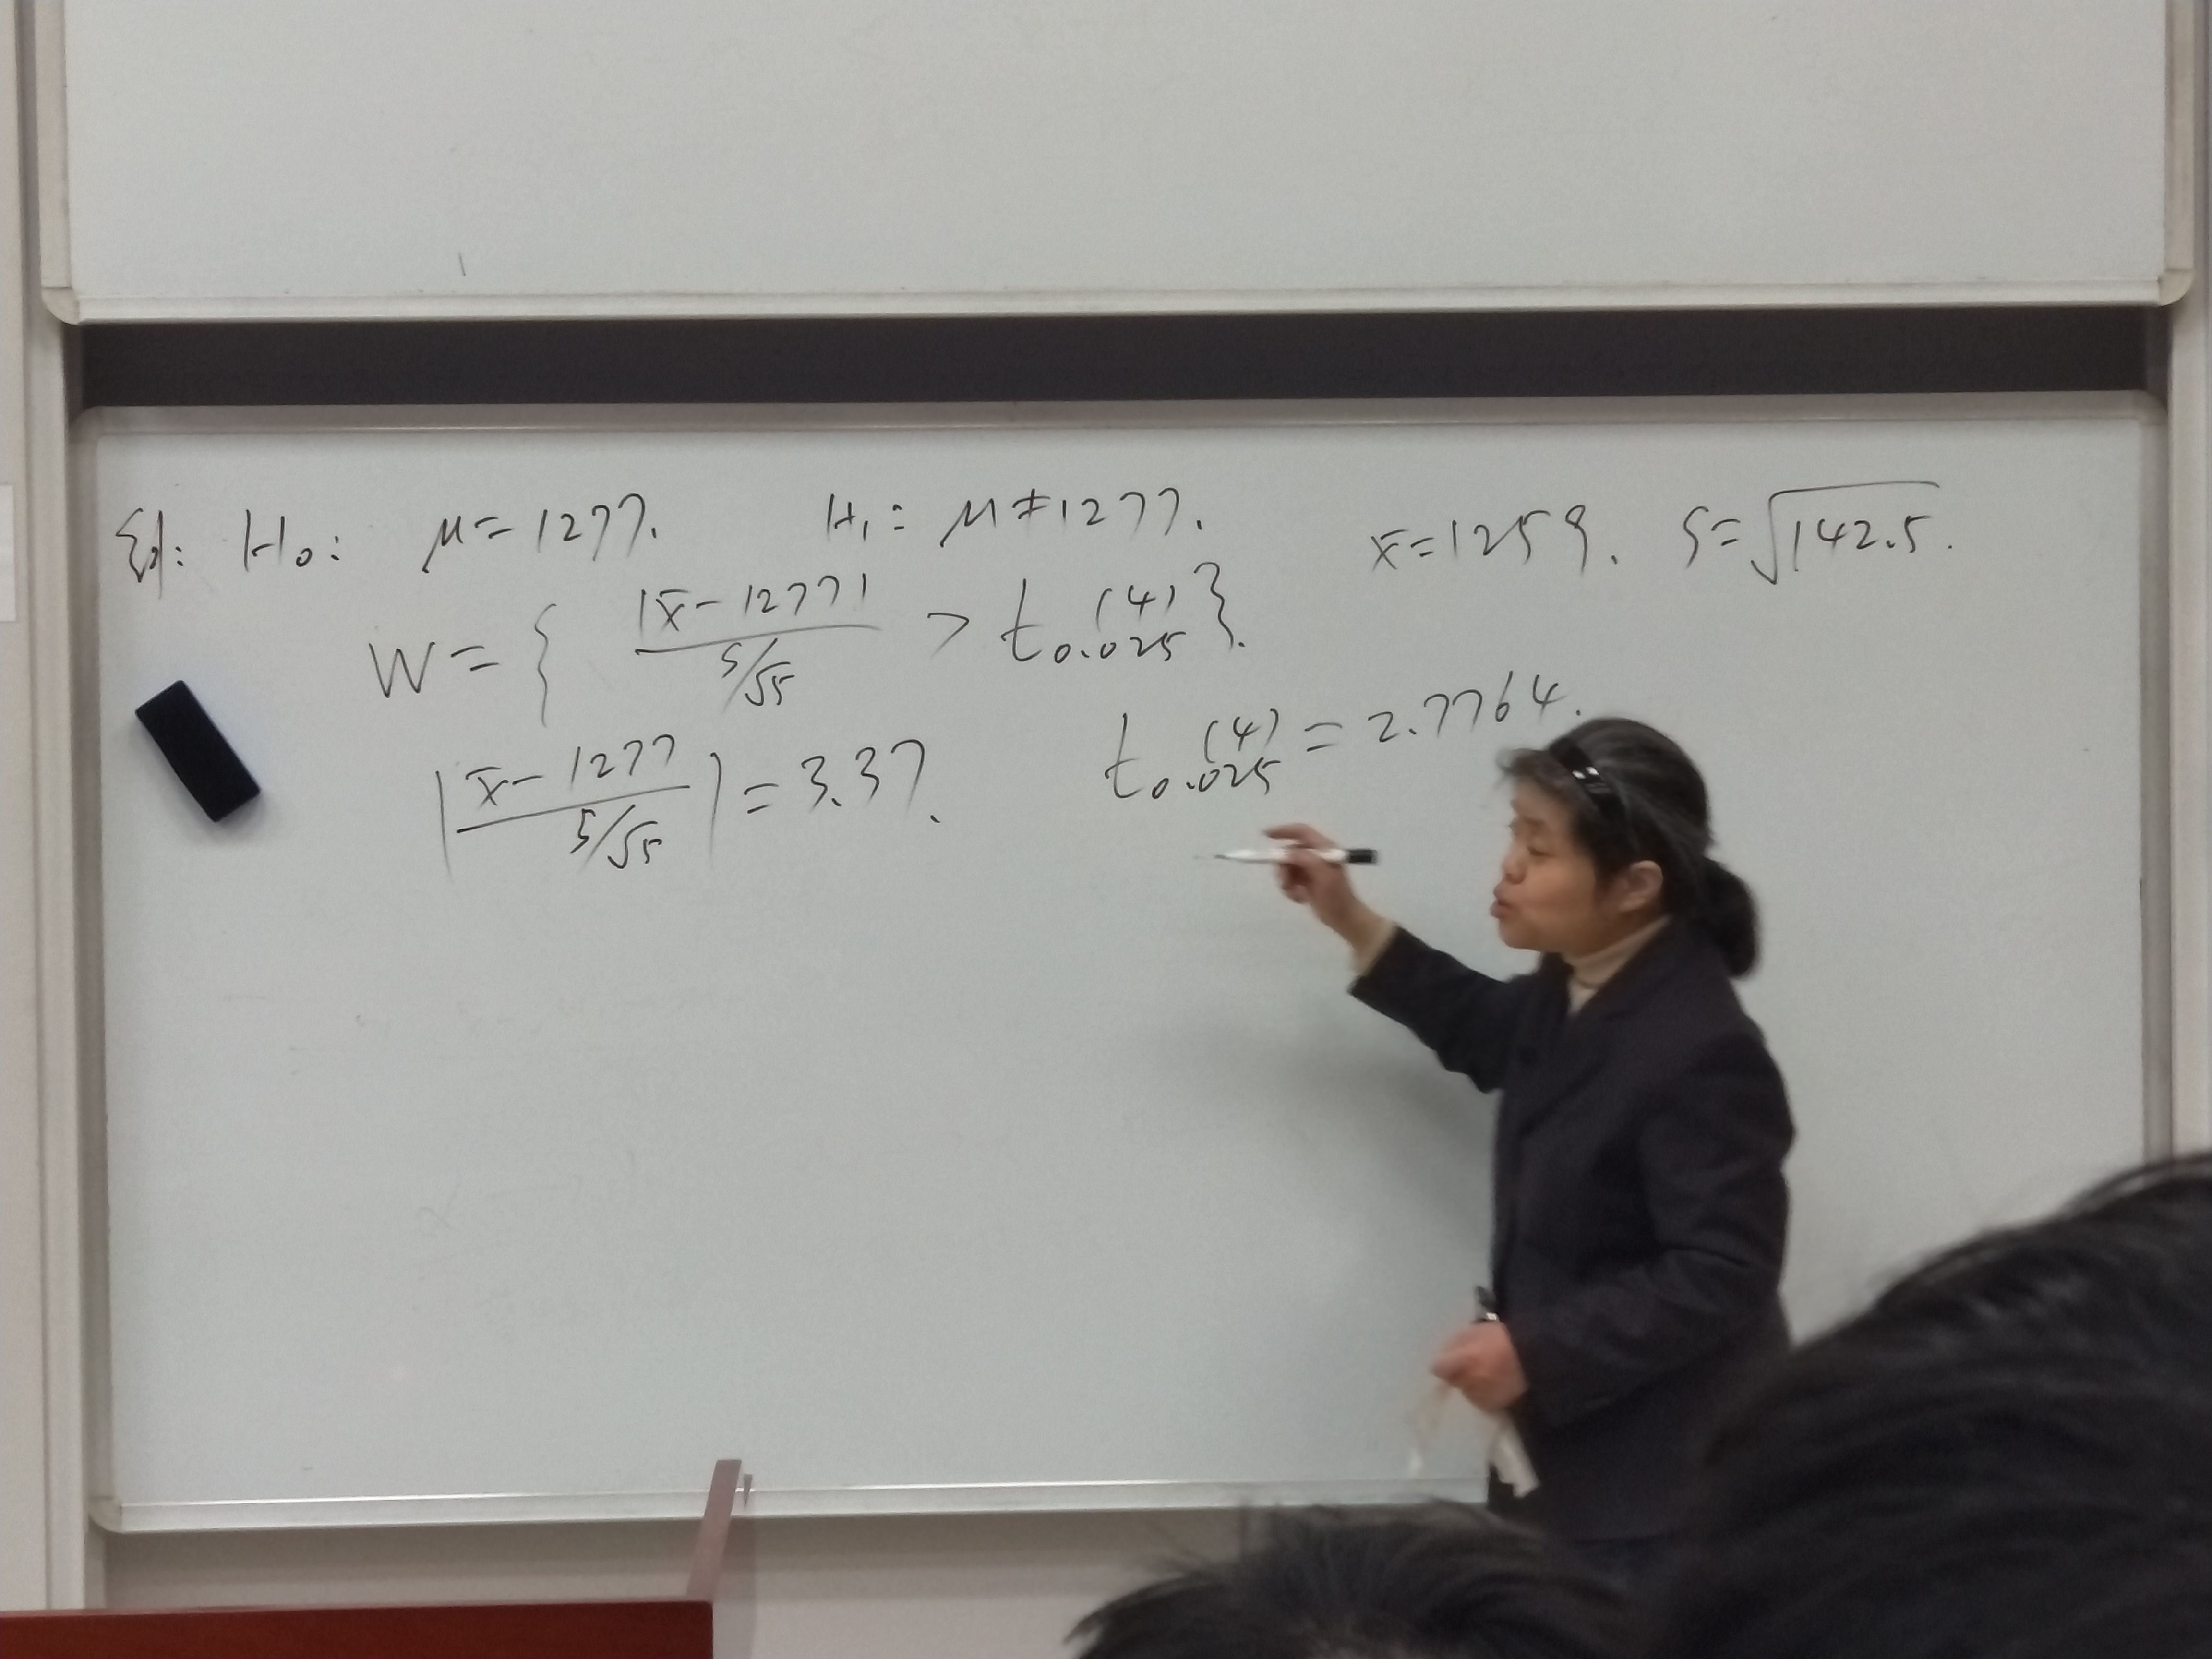 例: H₀: μ=1277. H₁: μ≠1277. x̄=1259. S=√142.5.
W={ |x̄-1277| / (S/√5) > t₀.₀₂₅(4) }.
| (x̄-1277) / (S/√5) | =3.37. t₀.₀₂₅(4)=2.7764.